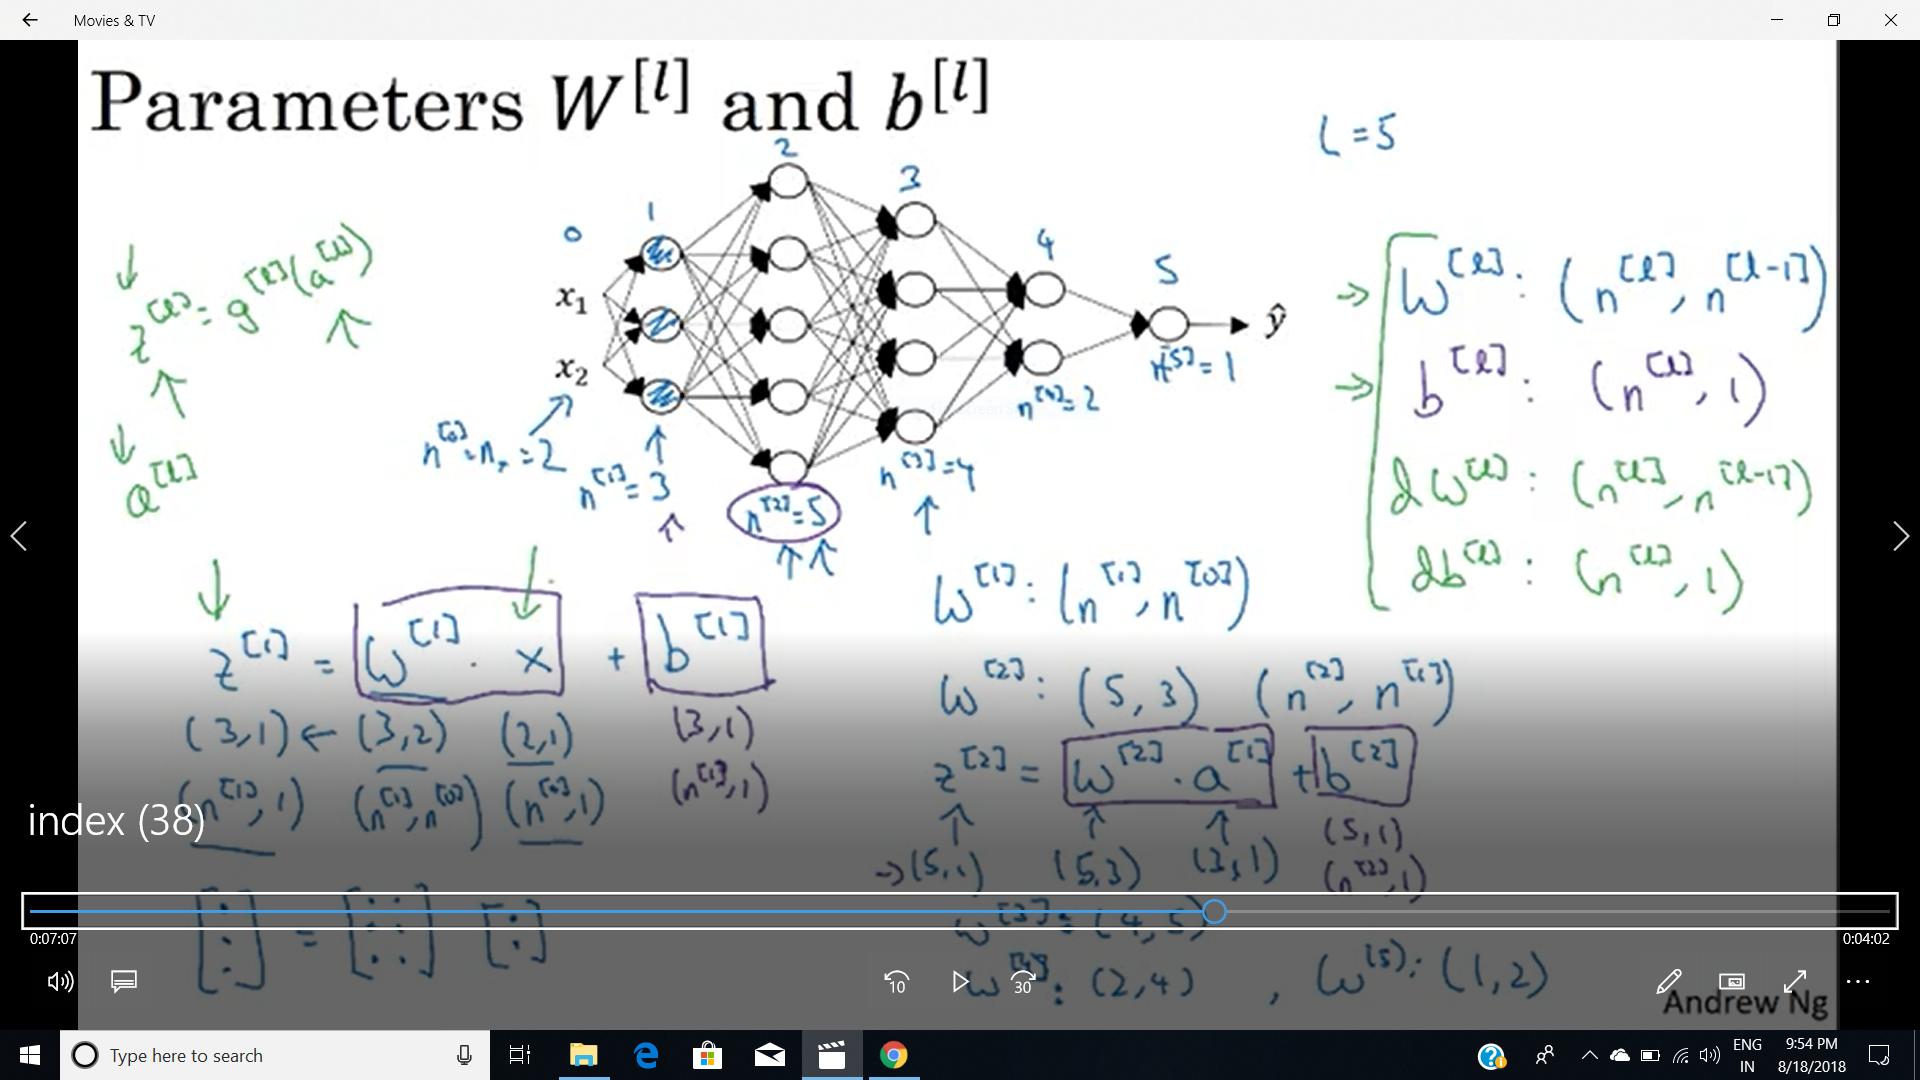 Movies & TV
Parameters W^[l] and b^[l]
L = 5
0 1 2 3 4 5
x₁
x₂
ŷ
n^[0] = nₓ = 2
n^[1] = 3
n^[2] = 5
n^[3] = 4
n^[4] = 2
n^[5] = 1
z^[l] = g^[l](a^[l])
a^[l]
W^[l] : (n^[l], n^[l-1])
b^[l] : (n^[l], 1)
dW^[l] : (n^[l], n^[l-1])
db^[l] : (n^[l], 1)
z^[1] = W^[1] · x + b^[1]
(3,1) ← (3,2) (2,1) (3,1)
(n^[1], 1) (n^[1], n^[0]) (n^[0], 1) (n^[1], 1)
[:] = [: :] [:]
W^[1] : (n^[1], n^[0])
W^[2] : (5, 3) (n^[2], n^[1])
z^[2] = W^[2] · a^[1] + b^[2]
→ (5,1) (5,3) (3,1) (5,1)
(n^[2], 1)
W^[3] : (4, 5)
W^[4] : (2,4) , W^[5] : (1,2)
Andrew Ng
index (38)
0:07:07
0:04:02
10
30
Type here to search
ENG
IN
9:54 PM
8/18/2018